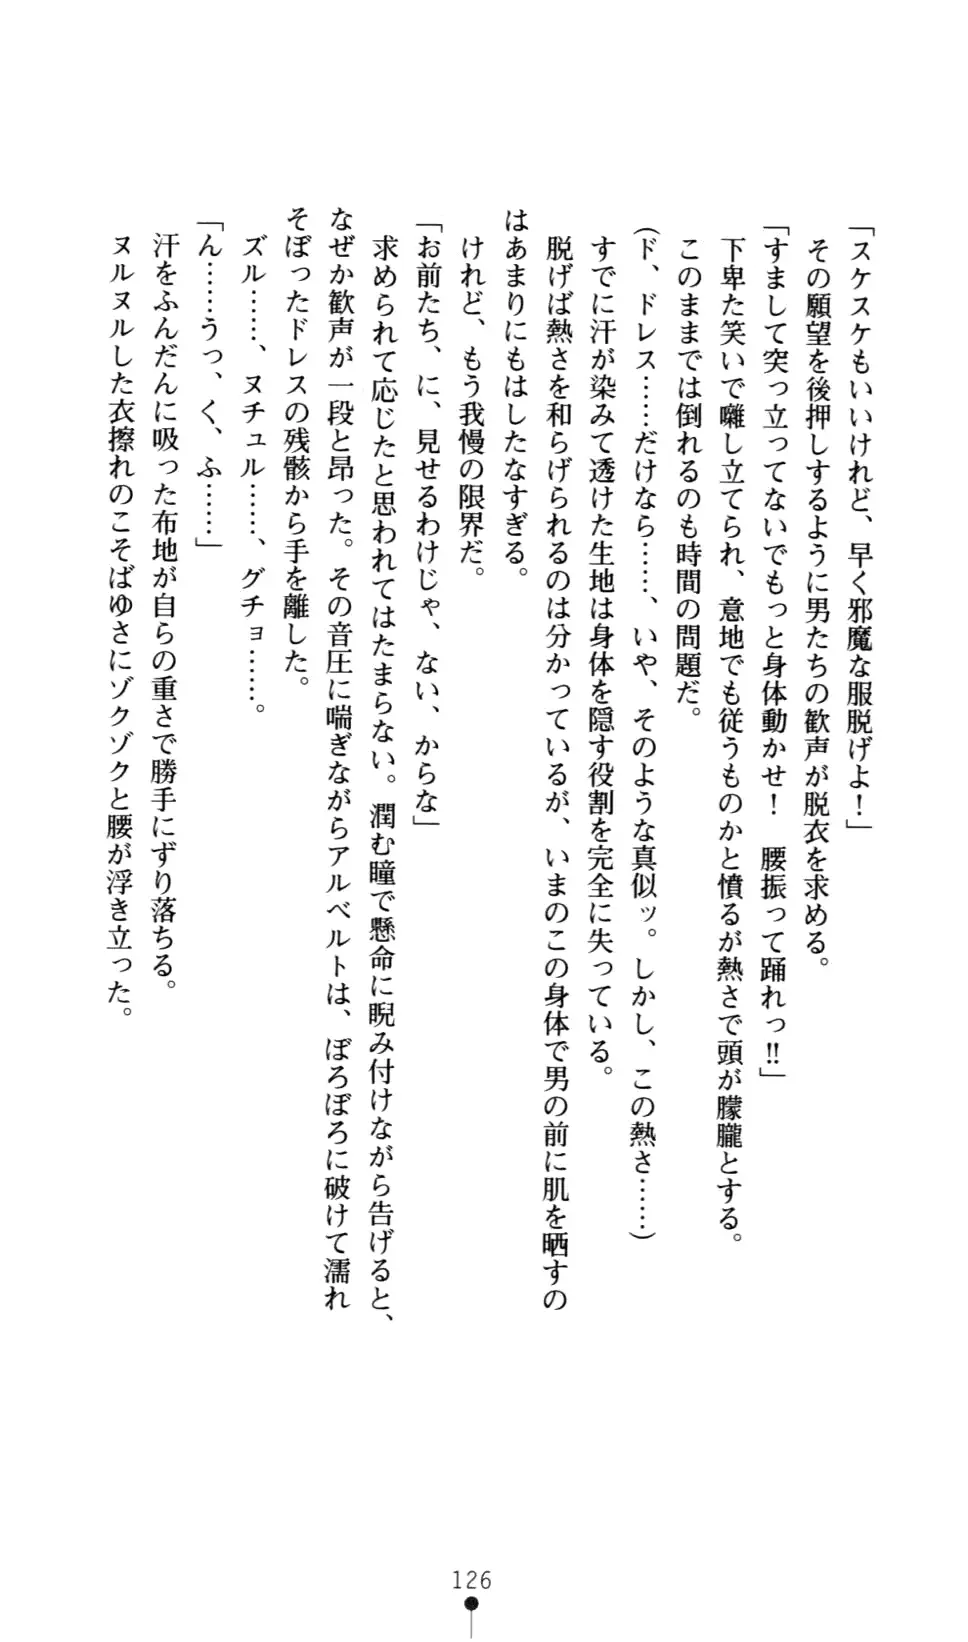 「スケスケもいいけれど、早く邪魔な服脱げよ！」
その願望を後押しするように男たちの歓声が脱衣を求める。
「すまして突っ立ってないでもっと身体動かせ！　腰振って踊れっ!!」
下卑た笑いで囃し立てられ、意地でも従うものかと憤るが熱さで頭が朦朧とする。
このままでは倒れるのも時間の問題だ。
（ド、ドレス……だけなら……、いや、そのような真似ッ。しかし、この熱さ……）
すでに汗が染みて透けた生地は身体を隠す役割を完全に失っている。
脱げば熱さを和らげられるのは分かっているが、いまのこの身体で男の前に肌を晒すの
はあまりにもはしたなすぎる。
けれど、もう我慢の限界だ。
「お前たち、に、見せるわけじゃ、ない、からな」
求められて応じたと思われてはたまらない。潤む瞳で懸命に睨み付けながら告げると、
なぜか歓声が一段と昂った。その音圧に喘ぎながらアルベルトは、ぼろぼろに破けて濡れ
そぼったドレスの残骸から手を離した。
ズル……、ヌチュル……、グチョ……。
「ん……うっ、く、ふ……」
汗をふんだんに吸った布地が自らの重さで勝手にずり落ちる。
ヌルヌルした衣擦れのこそばゆさにゾクゾクと腰が浮き立った。
126